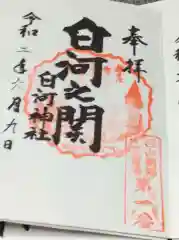 奉拝
白河之関
白河神社
令和二年六月九日